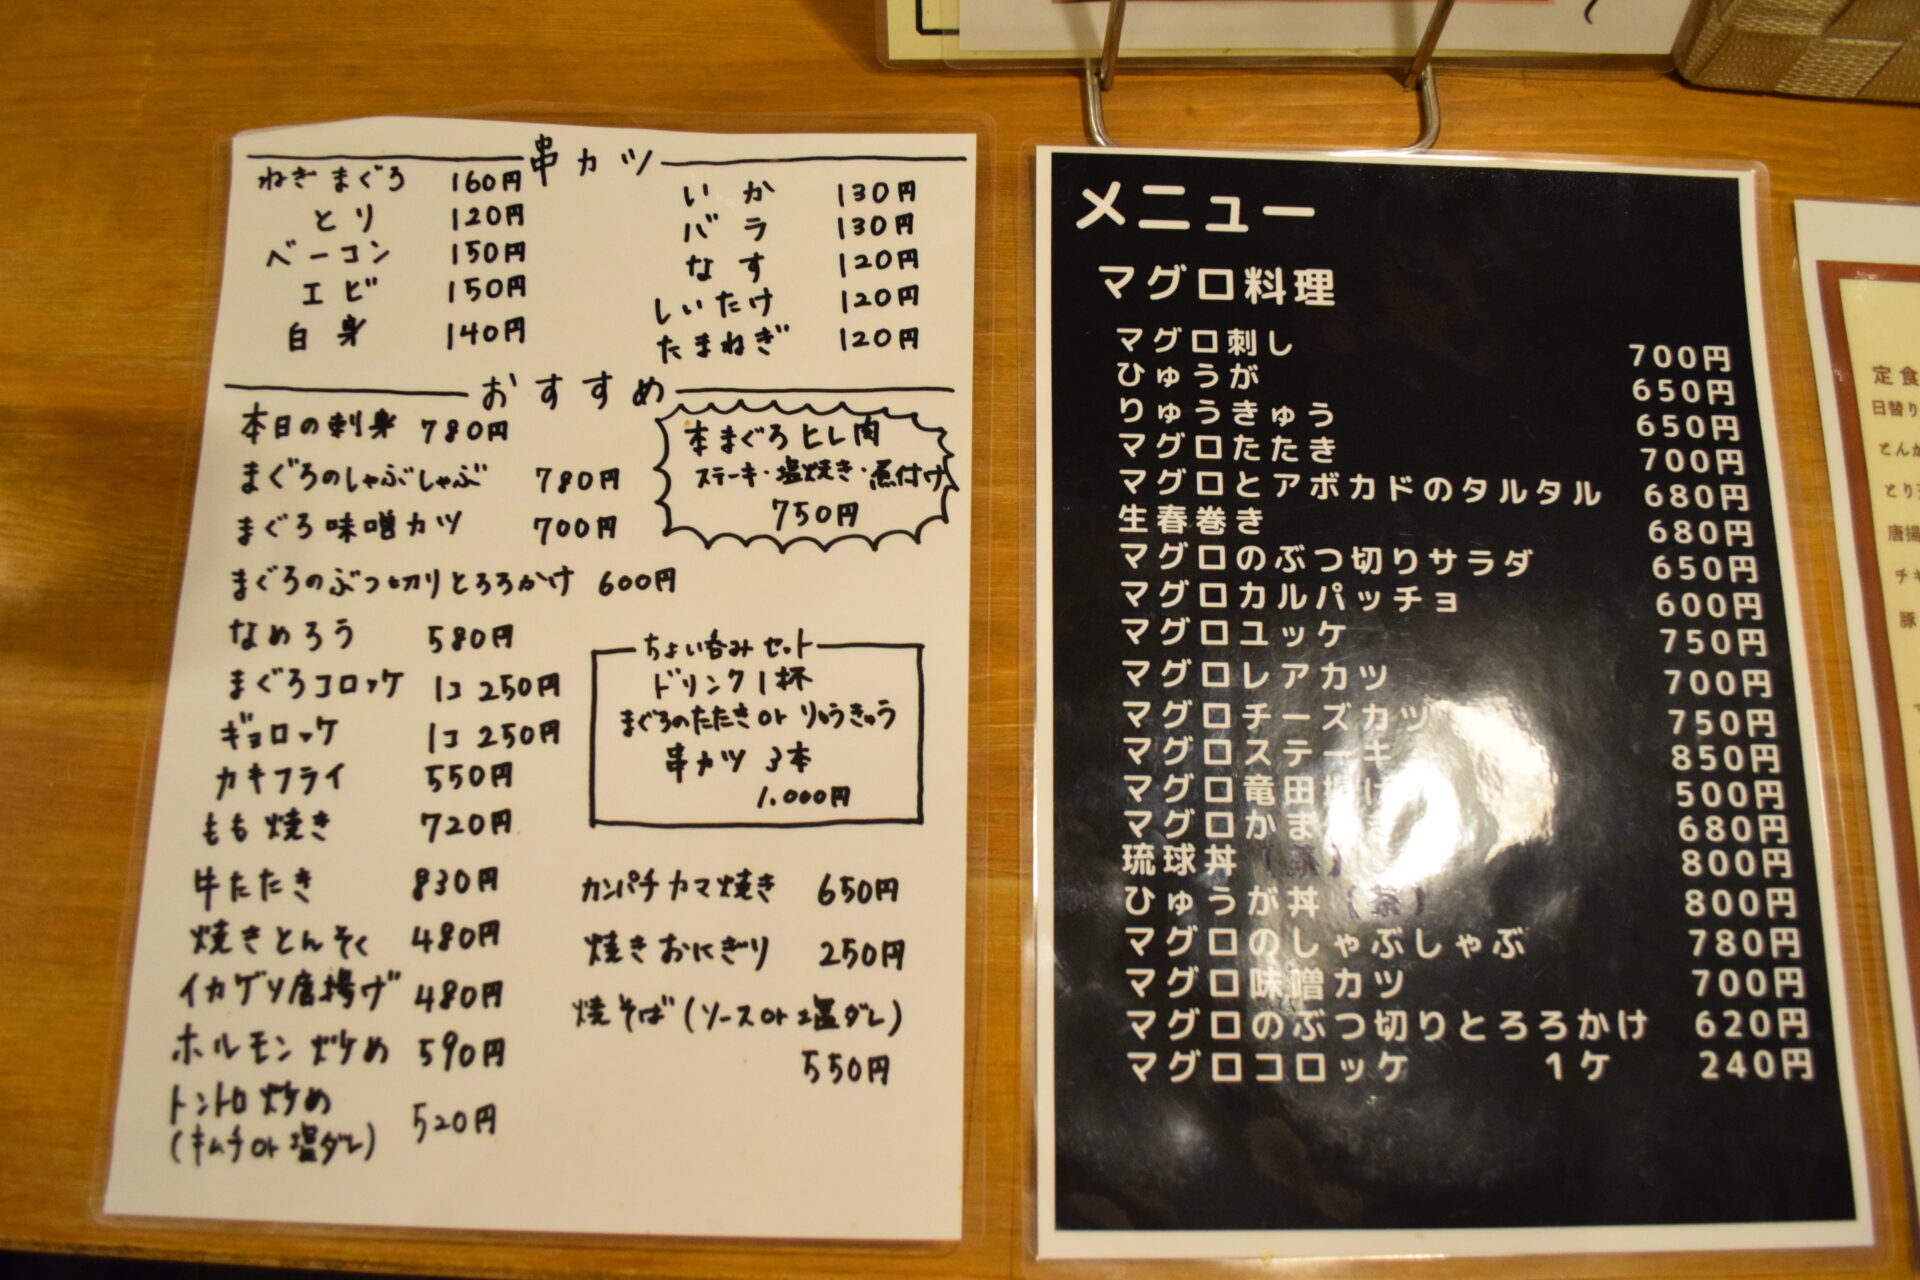 串カツ
ねぎまぐろ 160円
とり 120円
ベーコン 150円
エビ 150円
白身 140円
いか 130円
バラ 130円
なす 120円
しいたけ 120円
たまねぎ 120円
おすすめ
本日の刺身 780円
まぐろのしゃぶしゃぶ 780円
まぐろ味噌カツ 700円
まぐろのぶつ切りとろろかけ 600円
なめろう 580円
まぐろコロッケ 1コ 250円
ギョロッケ 1コ 250円
カキフライ 550円
もも焼き 720円
牛たたき 830円
焼きとんそく 480円
イカゲソ唐揚げ 480円
ホルモン炒め 590円
トントロ炒め
(キムチor塩ダレ) 520円
本まぐろヒレ肉
ステーキ・塩焼き・煮付け
750円
ちょい呑みセット
ドリンク1杯
まぐろのたたきorりゅうきゅう
串カツ 3本
1.000円
カンパチカマ焼き 650円
焼きおにぎり 250円
焼そば(ソースor塩ダレ)
550円
メニュー
マグロ料理
マグロ刺し 700円
ひゅうが 650円
りゅうきゅう 650円
マグロたたき 700円
マグロとアボカドのタルタル 680円
生春巻き 680円
マグロのぶつ切りサラダ 650円
マグロカルパッチョ 600円
マグロユッケ 750円
マグロレアカツ 700円
マグロチーズカツ 750円
マグロステーキ 850円
マグロ竜田揚げ 500円
マグロかま 680円
琉球丼(茶) 800円
ひゅうが丼(茶) 800円
マグロのしゃぶしゃぶ 780円
マグロ味噌カツ 700円
マグロのぶつ切りとろろかけ 620円
マグロコロッケ 1ケ 240円
定食
日替り
とんか
とり
唐揚
チキ
豚